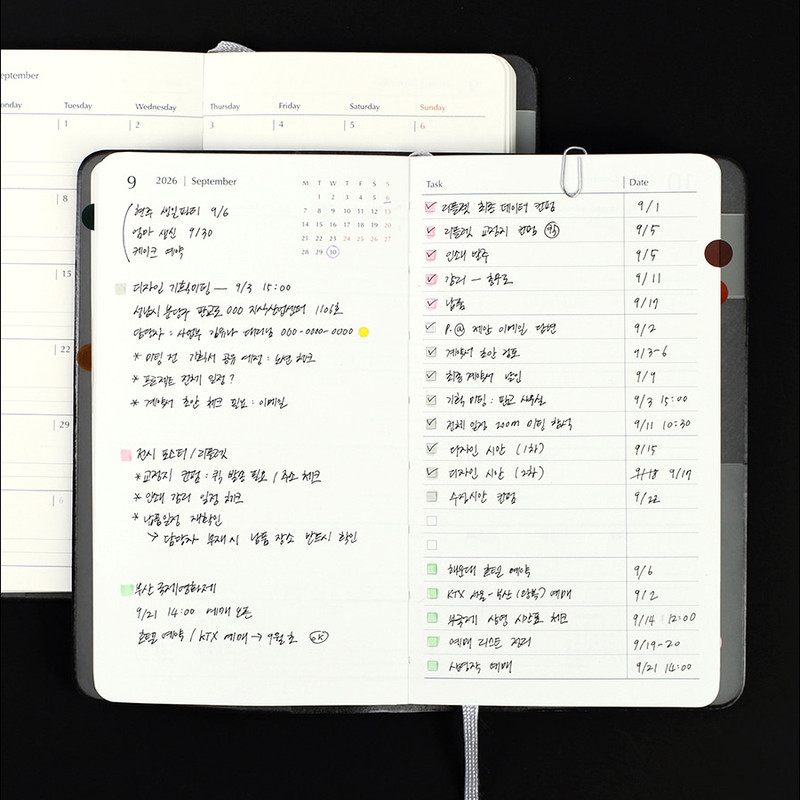 eptember
onday Tuesday Wednesday Thursday Friday Saturday Sunday
1 2 3 4 5 6
8
15
22
29
9 2026 | September
M T W T F S S
1 2 3 4 5 6
7 8 9 10 11 12 13
14 15 16 17 18 19 20
21 22 23 24 25 26 27
28 29 30
현주 생일파티 9/6
엄마 생신 9/30
케이크 예약
디자인 기획미팅 — 9/3 15:00
성남시 분당구 판교로 000 지식산업센터 1106호
담당자 : 사업부 김유나 대리님 000-0000-0000
* 미팅 전 기획서 공유 예정 : 노션 체크
* 프로젝트 전체 일정?
* 계약서 초안 체크 필요 : 이메일
전시 포스터 / 리플렛
* 교정지 컨펌 : 퀵 발송 필요 / 주소 체크
* 인쇄 감리 일정 체크
* 납품일정 재확인
↳ 담당자 부재시 납품 장소 반드시 확인
부산국제영화제
9/21 14:00 예매 오픈
호텔 예약 / KTX 예매 → 9월 초 OK
Task Date
리플렛 최종 데이터 컨펌 9/1
리플렛 교정지 컨펌 9/5
인쇄 발주 9/5
감리 — 충무로 9/11
납품 9/17
P.@ 제안 이메일 답변 9/2
계약서 초안 검토 9/3-6
최종 계약서 날인 9/9
기획 미팅 : 판교 사무실 9/3 15:00
전체 일정 zoom 미팅 참석 9/11 10:30
디자인 시안 (1차) 9/15
디자인 시안 (2차) 9/18 9/17
수정시안 컨펌 9/22
해운대 호텔 예약 9/6
KTX 서울-부산 (왕복) 예매 9/2
부국제 상영 시간표 체크 9/14 12:00
예매 리스트 정리 9/19-20
상영작 예매 9/21 14:00